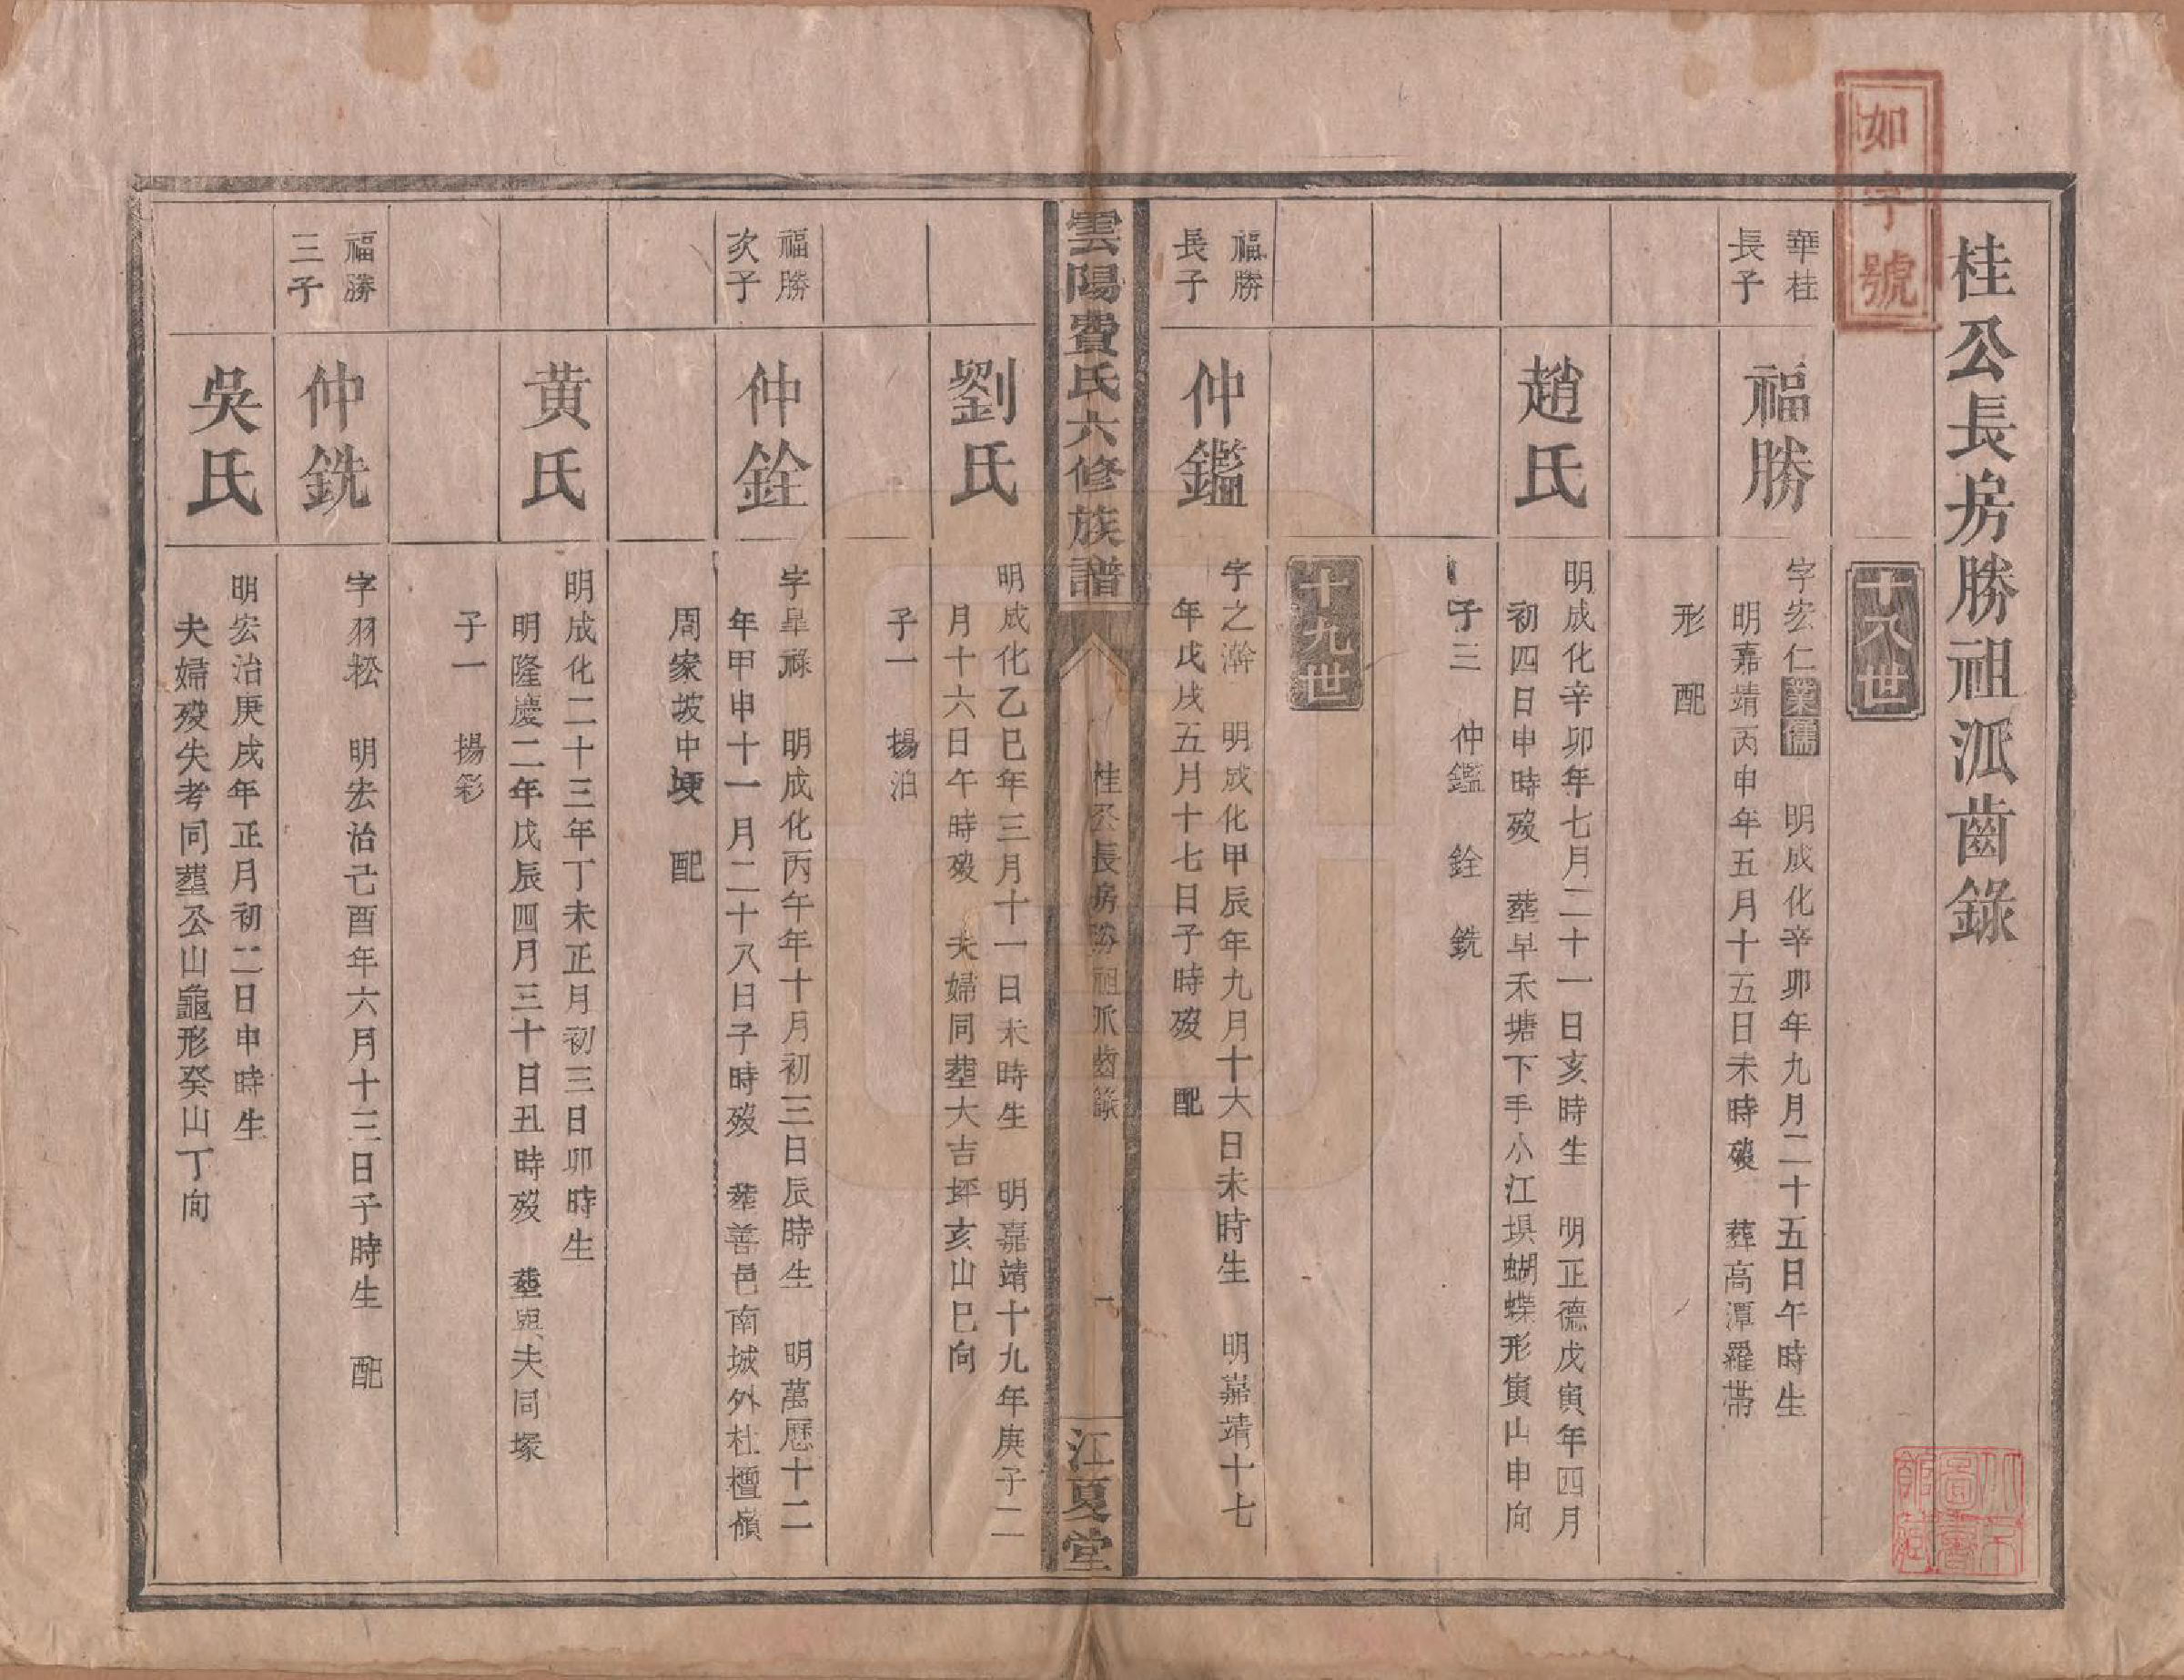 桂公長房勝祖派齒錄
如字號
十八世
華桂
長子
福勝
字宏仁業儒 明成化辛卯年九月二十五日午時生
明嘉靖丙申年五月十五日未時歿 葬高潭羅帶
形 配
趙氏
明成化辛卯年七月二十一日亥時生 明正德戊寅年四月
初四日申時歿 葬早禾塘下手小江塤蝴蝶形寅山申向
子三 仲鑑 銓 銑
十九世
福勝
長子
仲鑑
字之瀚 明成化甲辰年九月十六日未時生 明嘉靖十七
年戊戌五月十七日子時歿 配
雲陽費氏六修族譜
桂公長房勝祖派齒錄
一
江夏堂
劉氏
明成化乙巳年三月十一日未時生 明嘉靖十九年庚子二
月十六日午時歿 夫婦同塟大吉坪亥山巳向
子一 揚泊
福勝
次子
仲銓
字皐祿 明成化丙午年十月初三日辰時生 明萬歷十二
年甲申十一月二十八日子時歿 葬善邑南城外杜檀嶺
周家坡中 配
黄氏
明成化二十三年丁未正月初三日卯時生
明隆慶二年戊辰四月三十日丑時歿 塟與夫同塚
子一 揚彩
福勝
三子
仲銑
字羽松 明宏治己酉年六月十三日子時生 配
吳氏
明宏治庚戌年正月初二日申時生
夫婦歿失考同塟公山龜形癸山丁向